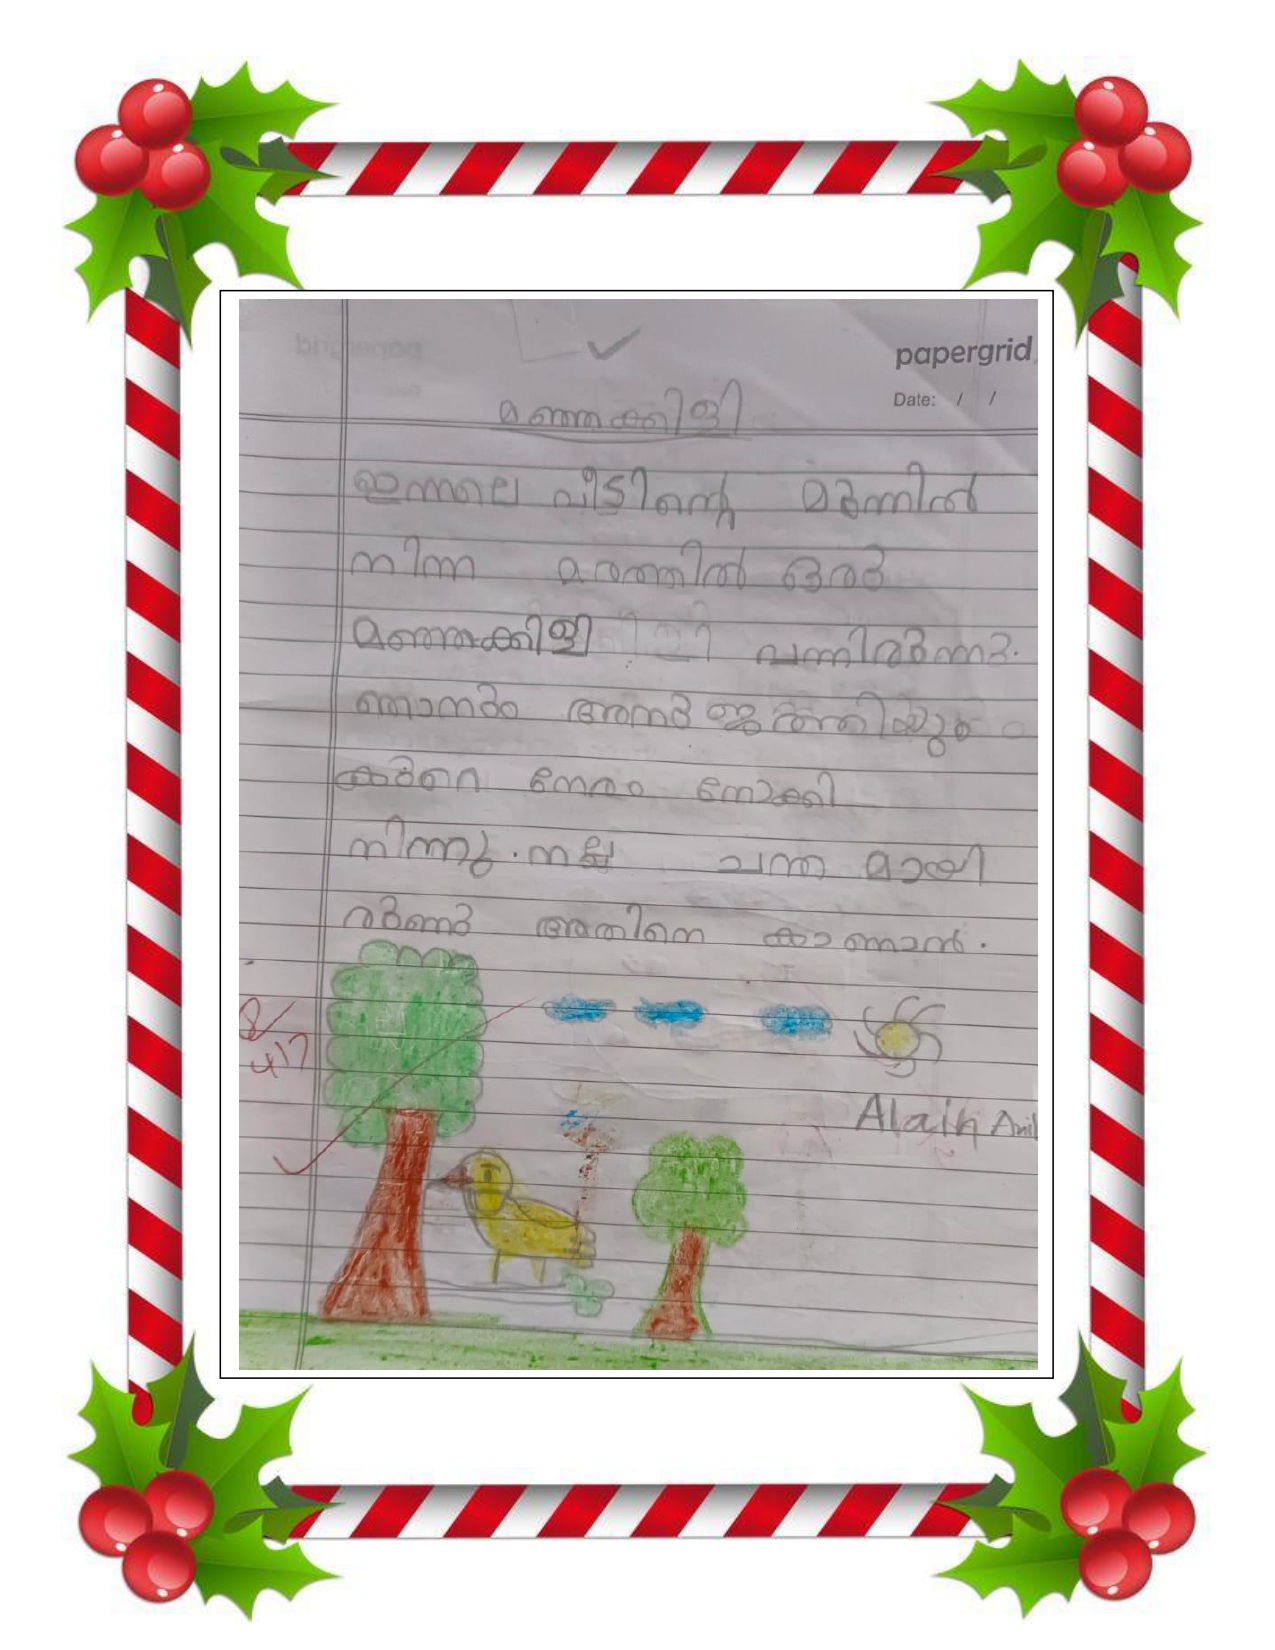 papergrid
Date: / /
മഞ്ഞക്കിളി
ഇന്നലെ വീടിന്റെ മുന്നിൽ
നിന്ന മരത്തിൽ ഒരു
മഞ്ഞക്കിളി വന്നിരുന്നു.
ഞാനും അനുജത്തിയും
കുറെ നേരം നോക്കി
നിന്നു. നല്ല ചന്ത മായി
രുന്നു അതിനെ കാണാൻ.
Alain Anil